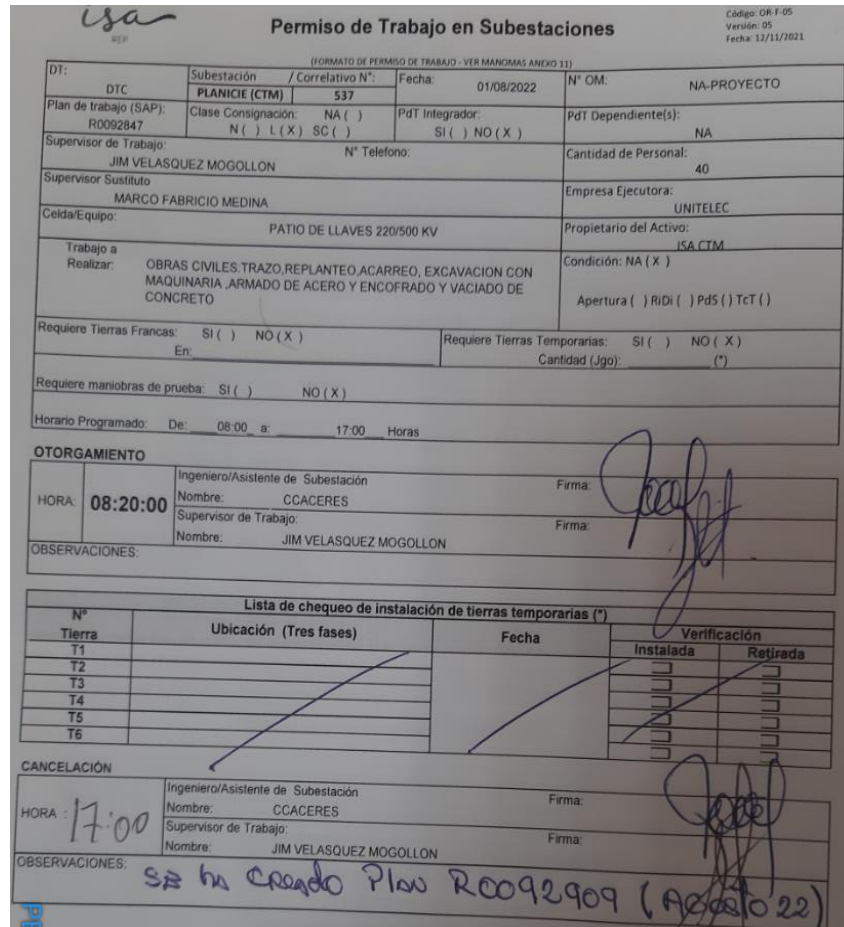 isa
REP
Permiso de Trabajo en Subestaciones
Código: OR-F-05
Versión: 05
Fecha: 12/11/2021
(FORMATO DE PERMISO DE TRABAJO - VER MANOMAS ANEXO 11)
DT: DTC
Subestación / Correlativo N°:
PLANICIE (CTM) 537
Fecha: 01/08/2022
N° OM: NA-PROYECTO
Plan de trabajo (SAP): R0092847
Clase Consignación: NA ( )
N ( ) L ( X ) SC ( )
PdT Integrador:
SI ( ) NO ( X )
PdT Dependiente(s):
NA
Supervisor de Trabajo: N° Telefono:
JIM VELASQUEZ MOGOLLON
Cantidad de Personal:
40
Supervisor Sustituto
MARCO FABRICIO MEDINA
Empresa Ejecutora:
UNITELEC
Celda/Equipo:
PATIO DE LLAVES 220/500 KV
Propietario del Activo:
ISA CTM
Trabajo a Realizar:
OBRAS CIVILES:TRAZO,REPLANTEO,ACARREO, EXCAVACION CON
MAQUINARIA ,ARMADO DE ACERO Y ENCOFRADO Y VACIADO DE
CONCRETO
Condición: NA ( X )
Apertura ( ) RiDi ( ) PdS ( ) TcT ( )
Requiere Tierras Francas: SI ( ) NO ( X )
En:
Requiere Tierras Temporarias: SI ( ) NO ( X )
Cantidad (Jgo): (*)
Requiere maniobras de prueba: SI ( ) NO ( X )
Horario Programado: De: 08:00 a: 17:00 Horas
OTORGAMIENTO
HORA: 08:20:00
Ingeniero/Asistente de Subestación
Nombre: CCACERES
Firma:
Supervisor de Trabajo:
Nombre: JIM VELASQUEZ MOGOLLON
Firma:
OBSERVACIONES:
Lista de chequeo de instalación de tierras temporarias (*)
N° Tierra
Ubicación (Tres fases)
Fecha
Verificación
Instalada Retirada
T1
T2
T3
T4
T5
T6
CANCELACIÓN
HORA : 17:00
Ingeniero/Asistente de Subestación
Nombre: CCACERES
Firma:
Supervisor de Trabajo:
Nombre: JIM VELASQUEZ MOGOLLON
Firma:
OBSERVACIONES: SE ha creado Plan R0092909 (Agosto 22)